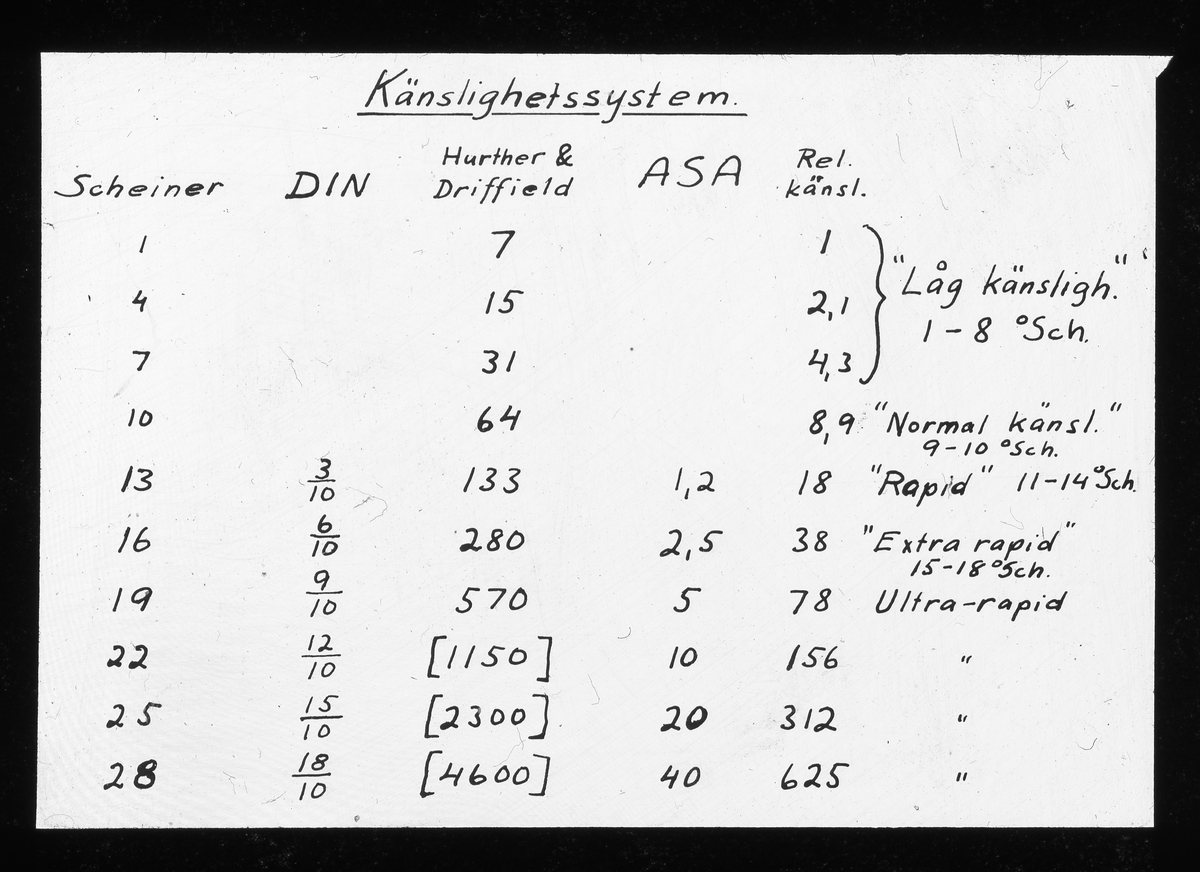 Känslighetssystem.
Scheiner DIN Hurther & Driffield ASA Rel. känsl.
1 7 1 "Låg känsligh."
4 15 2,1 1-8 °Sch.
7 31 4,3
10 64 8,9 "Normal känsl."
9-10 °Sch.
13 3/10 133 1,2 18 "Rapid" 11-14 °Sch.
16 6/10 280 2,5 38 "Extra rapid"
15-18 °Sch.
19 9/10 570 5 78 Ultra-rapid
22 12/10 [1150] 10 156 "
25 15/10 [2300] 20 312 "
28 18/10 [4600] 40 625 "